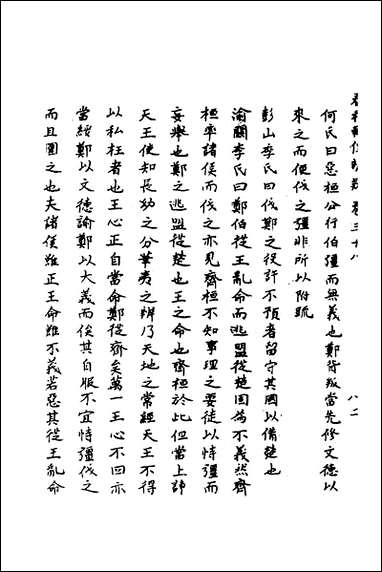 春秋輯傳辨疑 卷三十八
八二
何氏曰惡桓公行伯彊而無義也鄭背叛當先修文德以
來之而便伐之彊非所以附疏
彭山季氏曰伐鄭之役許不預者留守其國以備楚也
渝關李氏曰鄭伯從王亂命而逃盟從楚固爲不義然齊
桓率諸侯而伐之亦見齊桓不知事理之要徒以恃彊而
妄舉也鄭之逃盟從楚也王之命也齊桓於此但當上諦
天王使知長幼之分華夷之辨乃天地之常經天王不得
以私枉者也王心正自當命鄭從齊矣萬一王心不回亦
當綏鄭以文德諭鄭以大義而俟其自服不宜恃彊伐之
而且圍之也夫諸侯雖正王命雖不義若惡其從王亂命